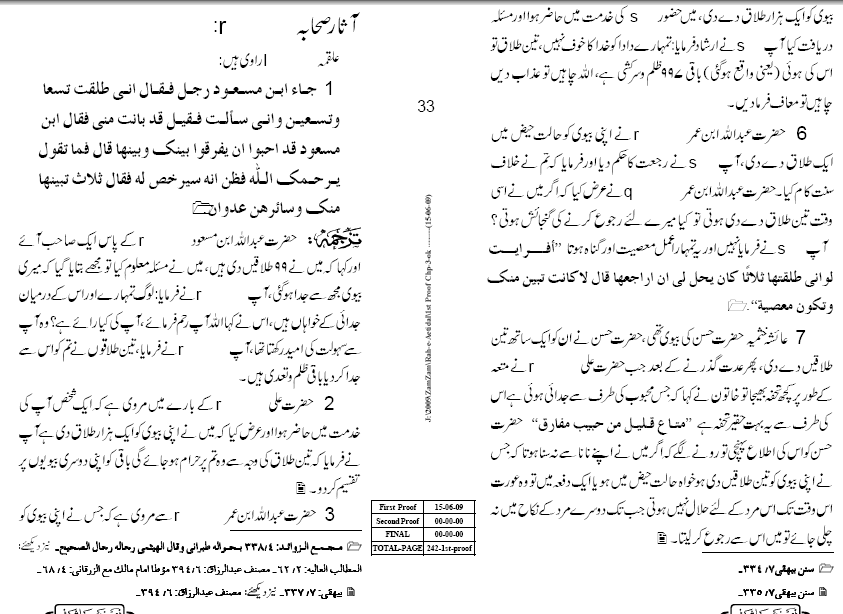 بیوی کو ایک ہزار طلاق دے دی، میں حضور s کی خدمت میں حاضر ہوا اور مسئلہ
دریافت کیا آپ s نے ارشاد فرمایا: تمہارے دادا کو خدا کا خوف نہیں، تین طلاق تو
اس کی ہوئی (یعنی واقع ہوگئی) باقی ۹۹۷ ظلم و سرکشی ہے، اللہ چاہیں تو عذاب دیں
چاہیں تو معاف فرمادیں۔
6 حضرت عبداللہ ابن عمر r نے اپنی بیوی کو حالت حیض میں
ایک طلاق دے دی، آپ s نے رجعت کا حکم دیا اور فرمایا کہ تم نے خلاف
سنت کام کیا۔ حضرت عبداللہ ابن عمر q نے عرض کیا کہ اگر میں نے اسی
وقت تین طلاق دے دی ہوتی تو کیا میرے لئے رجوع کرنے کی گنجائش ہوتی؟
آپ s نے فرمایا نہیں اور یہ تمہارا عمل معصیت اور گناہ ہوتا ”أفــرايــت
لوانى طلقتها ثلاثا كان يحل لى ان اراجعها قال لا كانت تبين منك
وتكون معصية“۔
7 عائشہ خثعمیہ حضرت حسن کی بیوی تھی، حضرت حسن نے ان کو ایک ساتھ تین
طلاقیں دے دی، پھر عدت گذرنے کے بعد جب حضرت علی r نے متعہ
کے طور پر کچھ تحفہ بھیجا تو خاتون نے کہا کہ جس محبوب کی طرف سے جدائی ہوئی ہے اس
کی طرف سے یہ بہت حقیر تحفہ ہے ”متاع قليل من حبيب مفارق“ حضرت
حسن کو اس کی اطلاع پہنچی تو رونے لگے کہ اگر میں نے اپنے نانا سے نہ سنا ہوتا کہ جس
نے اپنی بیوی کو تین طلاقیں دی ہو خواہ حالت حیض میں ہو یا ایک دفعہ میں تو وہ عورت
اس وقت تک اس مرد کے لئے حلال نہیں ہوتی جب تک دوسرے مرد کے نکاح میں نہ
چلی جائے تو میں اس سے رجوع کر لیتا۔
سنن بیہقی ۷/ ۳۳۴۔
سنن بیہقی ۷/ ۳۳۵۔
33
J:\2009\ZamZam\Rah-e-Aetidal\1st Proof Chp-3-ok -------(15-06-09)
First Proof 15-06-09
Second Proof 00-00-00
FINAL 00-00-00
TOTAL-PAGE 242-1st-proof
آثار صحابہ r:
علقمہ l راوی ہیں:
1 جـاء ابـن مسعـود رجـل فـقـال انـى طلقت تسعا
وتـسعيـن وانـى سـألـت فـقيـل قد بانت منى فقال ابن
مسعود قد احبوا ان يفرقوا بينك وبينها قال فما تقول
يـرحـمك الـلّٰه فظن انه سيرخص له فقال ثلاث تبينها
منك وسائرهن عدوان
ترجمہ: حضرت عبداللہ ابن مسعود r کے پاس ایک صاحب آئے
اور کہا کہ میں نے ۹۹ طلاقیں دی ہیں، میں نے مسئلہ معلوم کیا تو مجھے بتایا گیا کہ میری
بیوی مجھ سے جدا ہوگئی، آپ r نے فرمایا: لوگ تمہارے اور اس کے درمیان
جدائی کے خواہاں ہیں، اس نے کہا اللہ آپ رحم فرمائے، آپ کی کیا رائے ہے؟ وہ آپ
سے سہولت کی امید رکھتا تھا، آپ r نے فرمایا، تین طلاقوں نے تم کو اس سے
جدا کر دیا باقی ظلم و تعدی ہیں۔
2 حضرت علی r کے بارے میں مروی ہے کہ ایک شخص آپ کی
خدمت میں حاضر ہوا اور عرض کیا کہ میں نے اپنی بیوی کو ایک ہزار طلاق دی ہے آپ
نے فرمایا کہ تین طلاق کی وجہ سے وہ تم پر حرام ہوجائے گی باقی کو اپنی دوسری بیویوں پر
تقسیم کر دو۔
3 حضرت عبداللہ ابن عمر r سے مروی ہے کہ جس نے اپنی بیوی کو
مجمع الزوائد: ۴/ ۳۳۸ بحواله طبرانى وقال الهيثمى رجاله رجال الصحيح۔ نیز دیکھئے:
المطالب العالیه: ۲/ ۶۲۔ مصنف عبدالرزاق: ۶/ ۳۹۴ مؤطا امام مالك مع الزرقانى: ۴/ ۶۸۔
بیهقی: ۷/ ۳۳۷۔ نیز دیکھئے: مصنف عبدالرزاق: ۶/ ۳۹۴۔